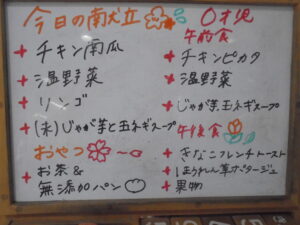 今日の献立
+ チキン南瓜
+ 温野菜
+ リンゴ
+ (米)じゃが芋と玉ネギスープ
おやつ
+ お茶&
無添加パン
0才児
午前食
+ チキンピカタ
+ 温野菜
+ じゃが芋玉ネギスープ
午後食
+ きなこフレンチトースト
+ ほうれん草ポタージュ
+ 果物